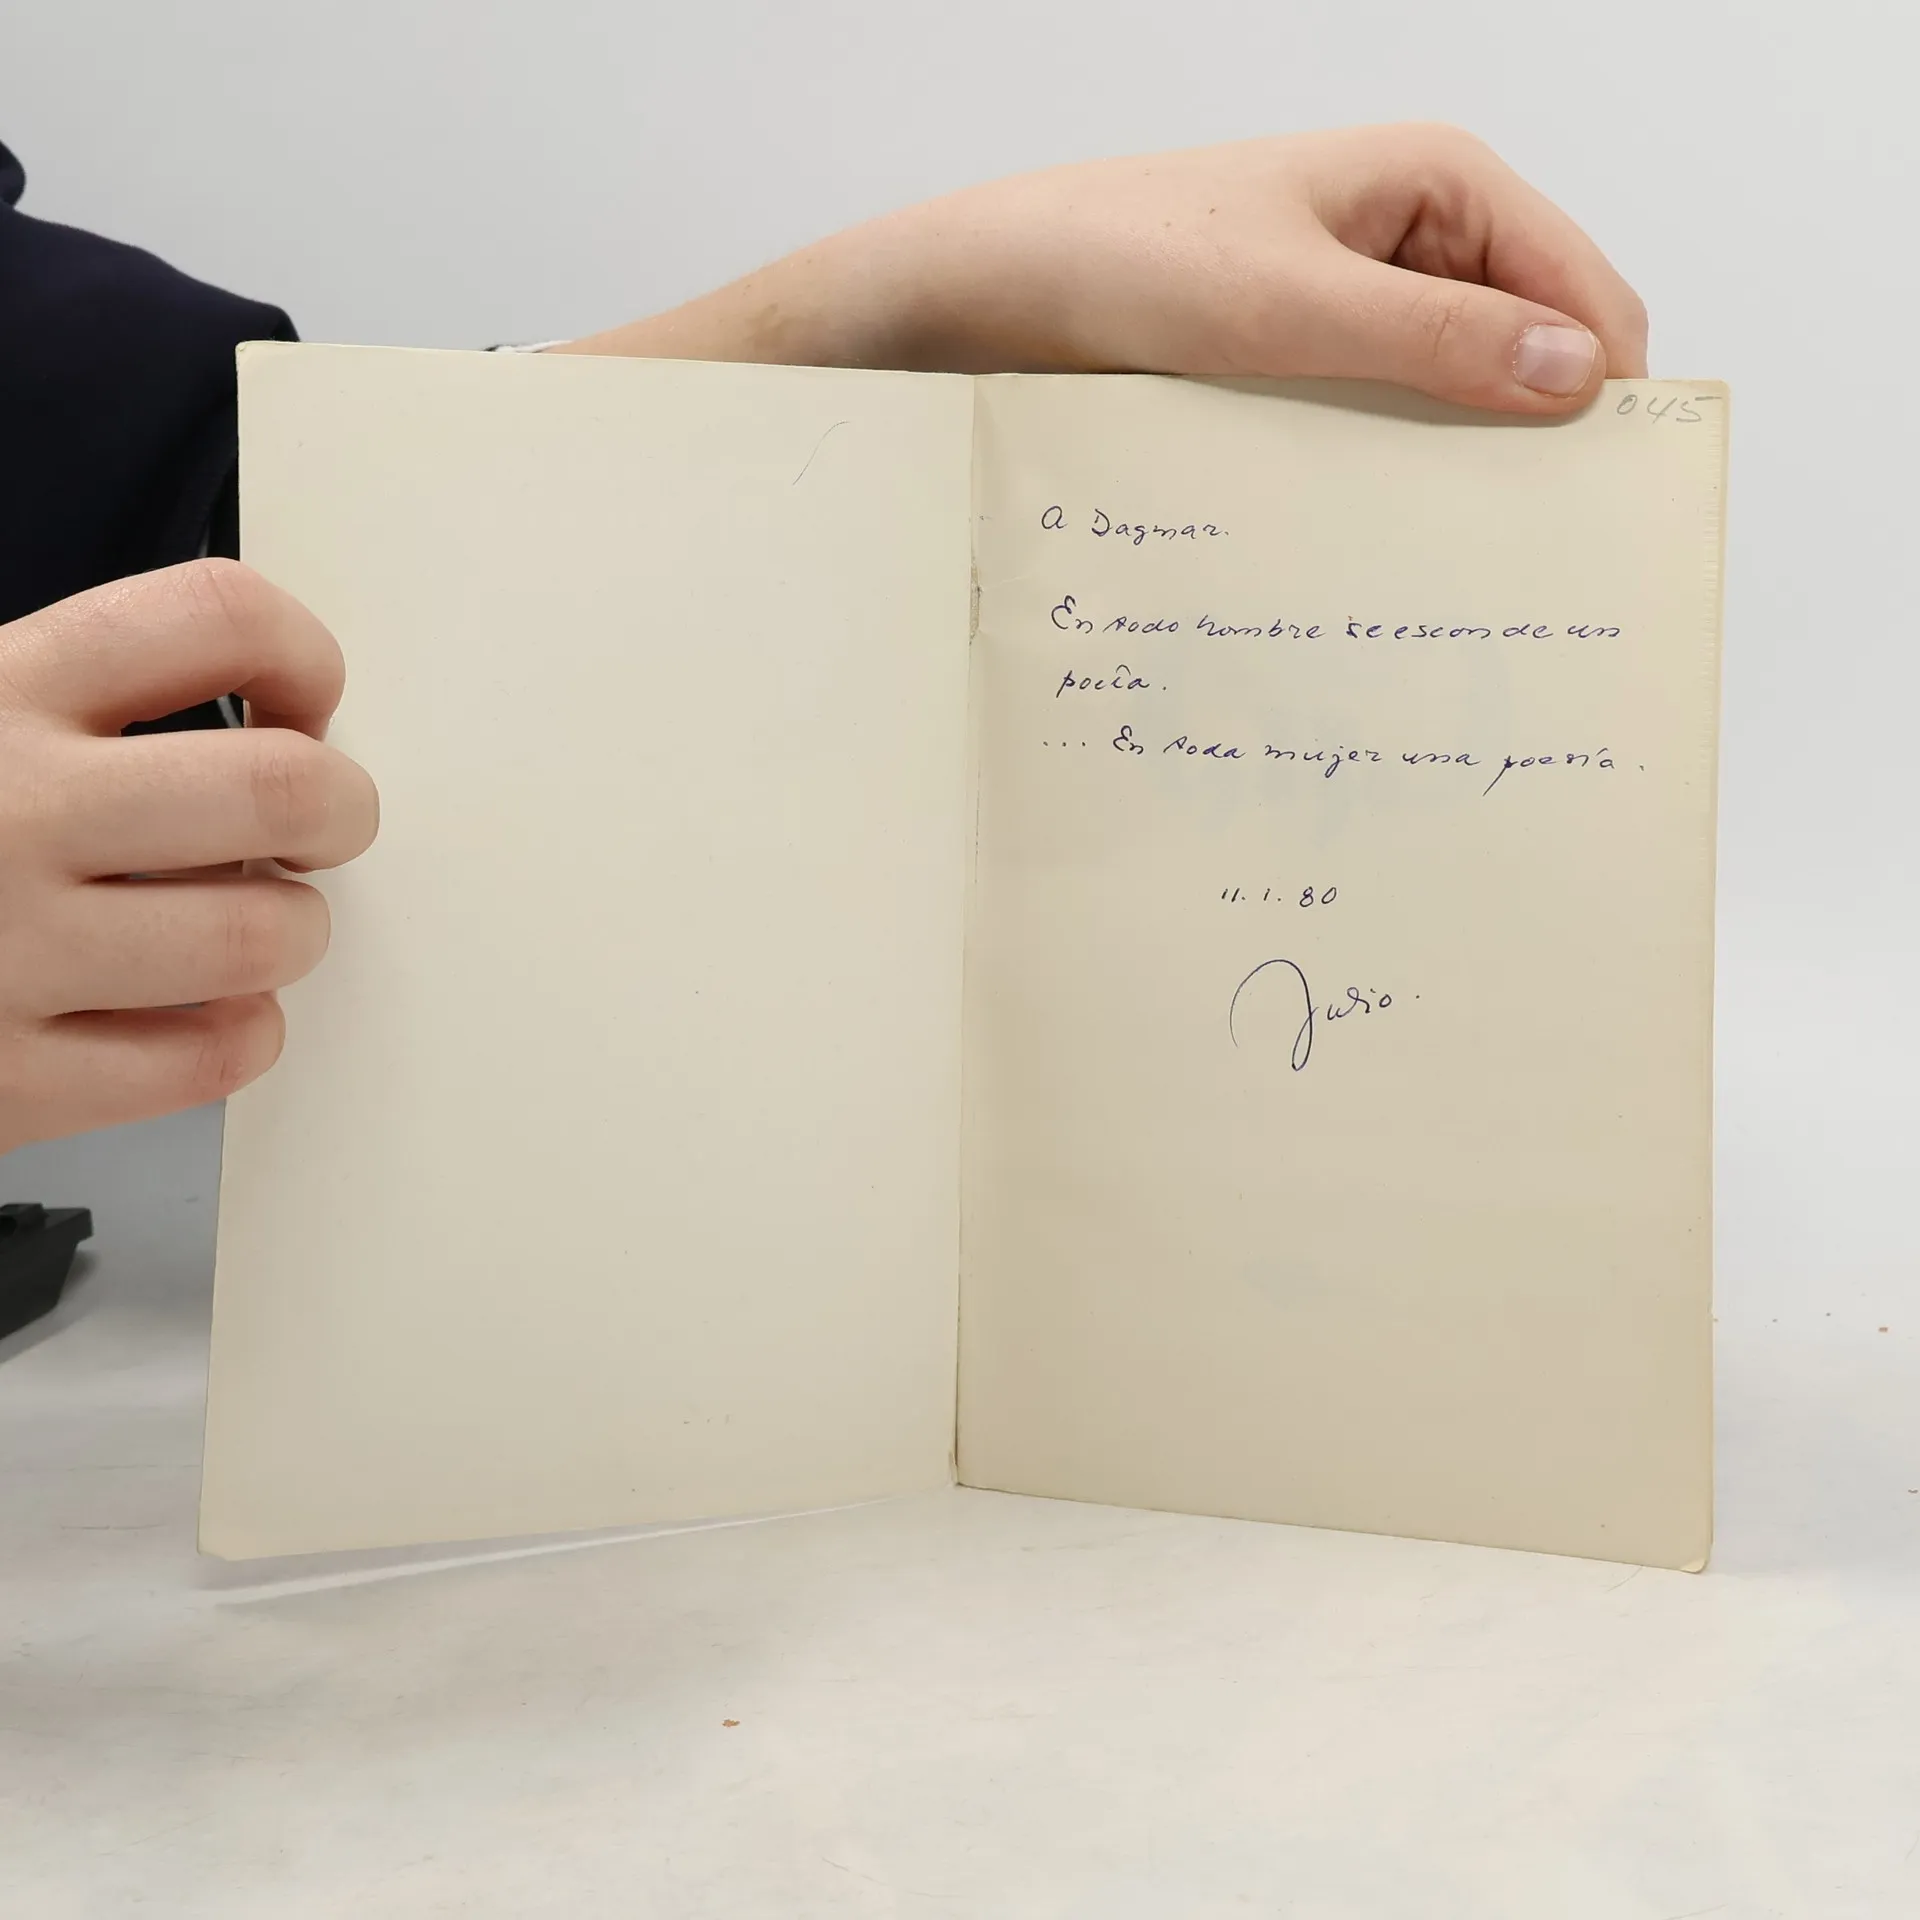 045
A Dagmar.
En todo hombre se esconde un
poeta.
... En toda mujer una poesía.
11. 1. 80
Julio.